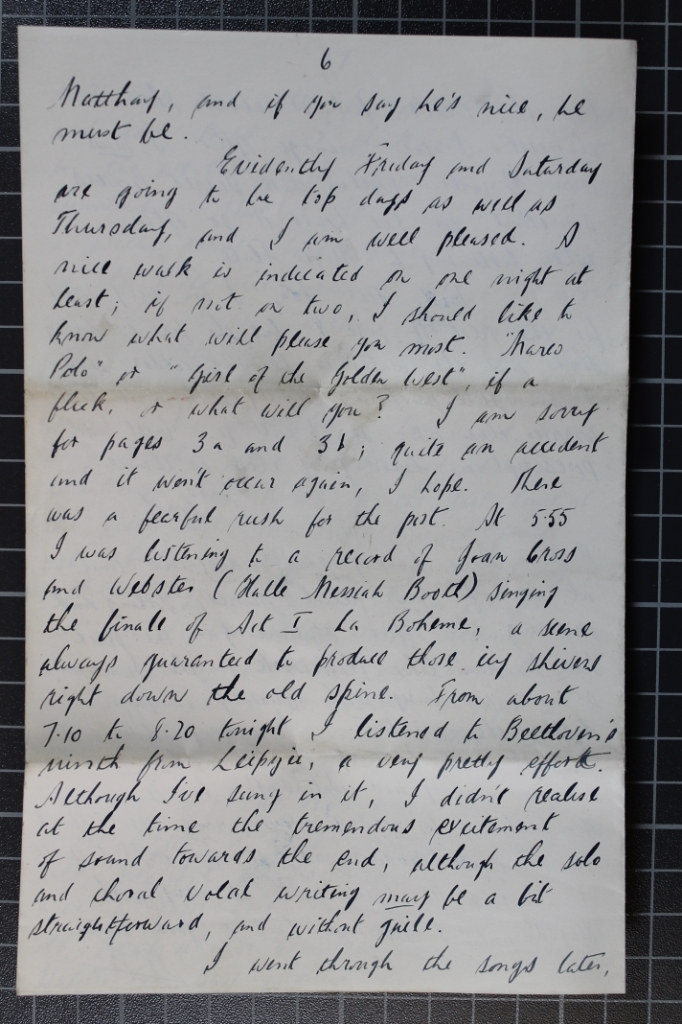 6
Matthay, and if you say he's nice, he
must be.
Evidently Friday and Saturday
are going to be top days as well as
Thursday, and I am well pleased. A
nice walk is indicated on one night at
least; if not on two, I should like to
know what will please you most. "Marco
Polo" or "Girl of the Golden West", if a
flick, or what will you? I am sorry
for pages 3a and 3b; quite an accident
and it won't occur again, I hope. There
was a fearful rush for the post. At 5.55
I was listening to a record of Joan Cross
and Webster (Halle Messiah Booth) singing
the finale of Act I La Boheme, a scene
always guaranteed to produce those icy shivers
right down the old spine. From about
7.10 to 8.20 tonight I listened to Beethoven's
ninth from Leipzic, a very pretty effort.
Although I've sung in it, I didn't realise
at the time the tremendous excitement
of sound towards the end, although the solo
and choral vocal writing may be a bit
straightforward, and without guile.
I went through the songs later,